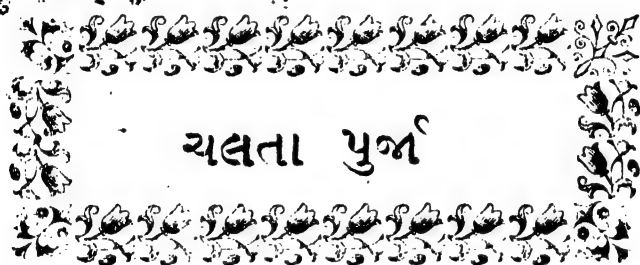 ચલતા પુર્જા